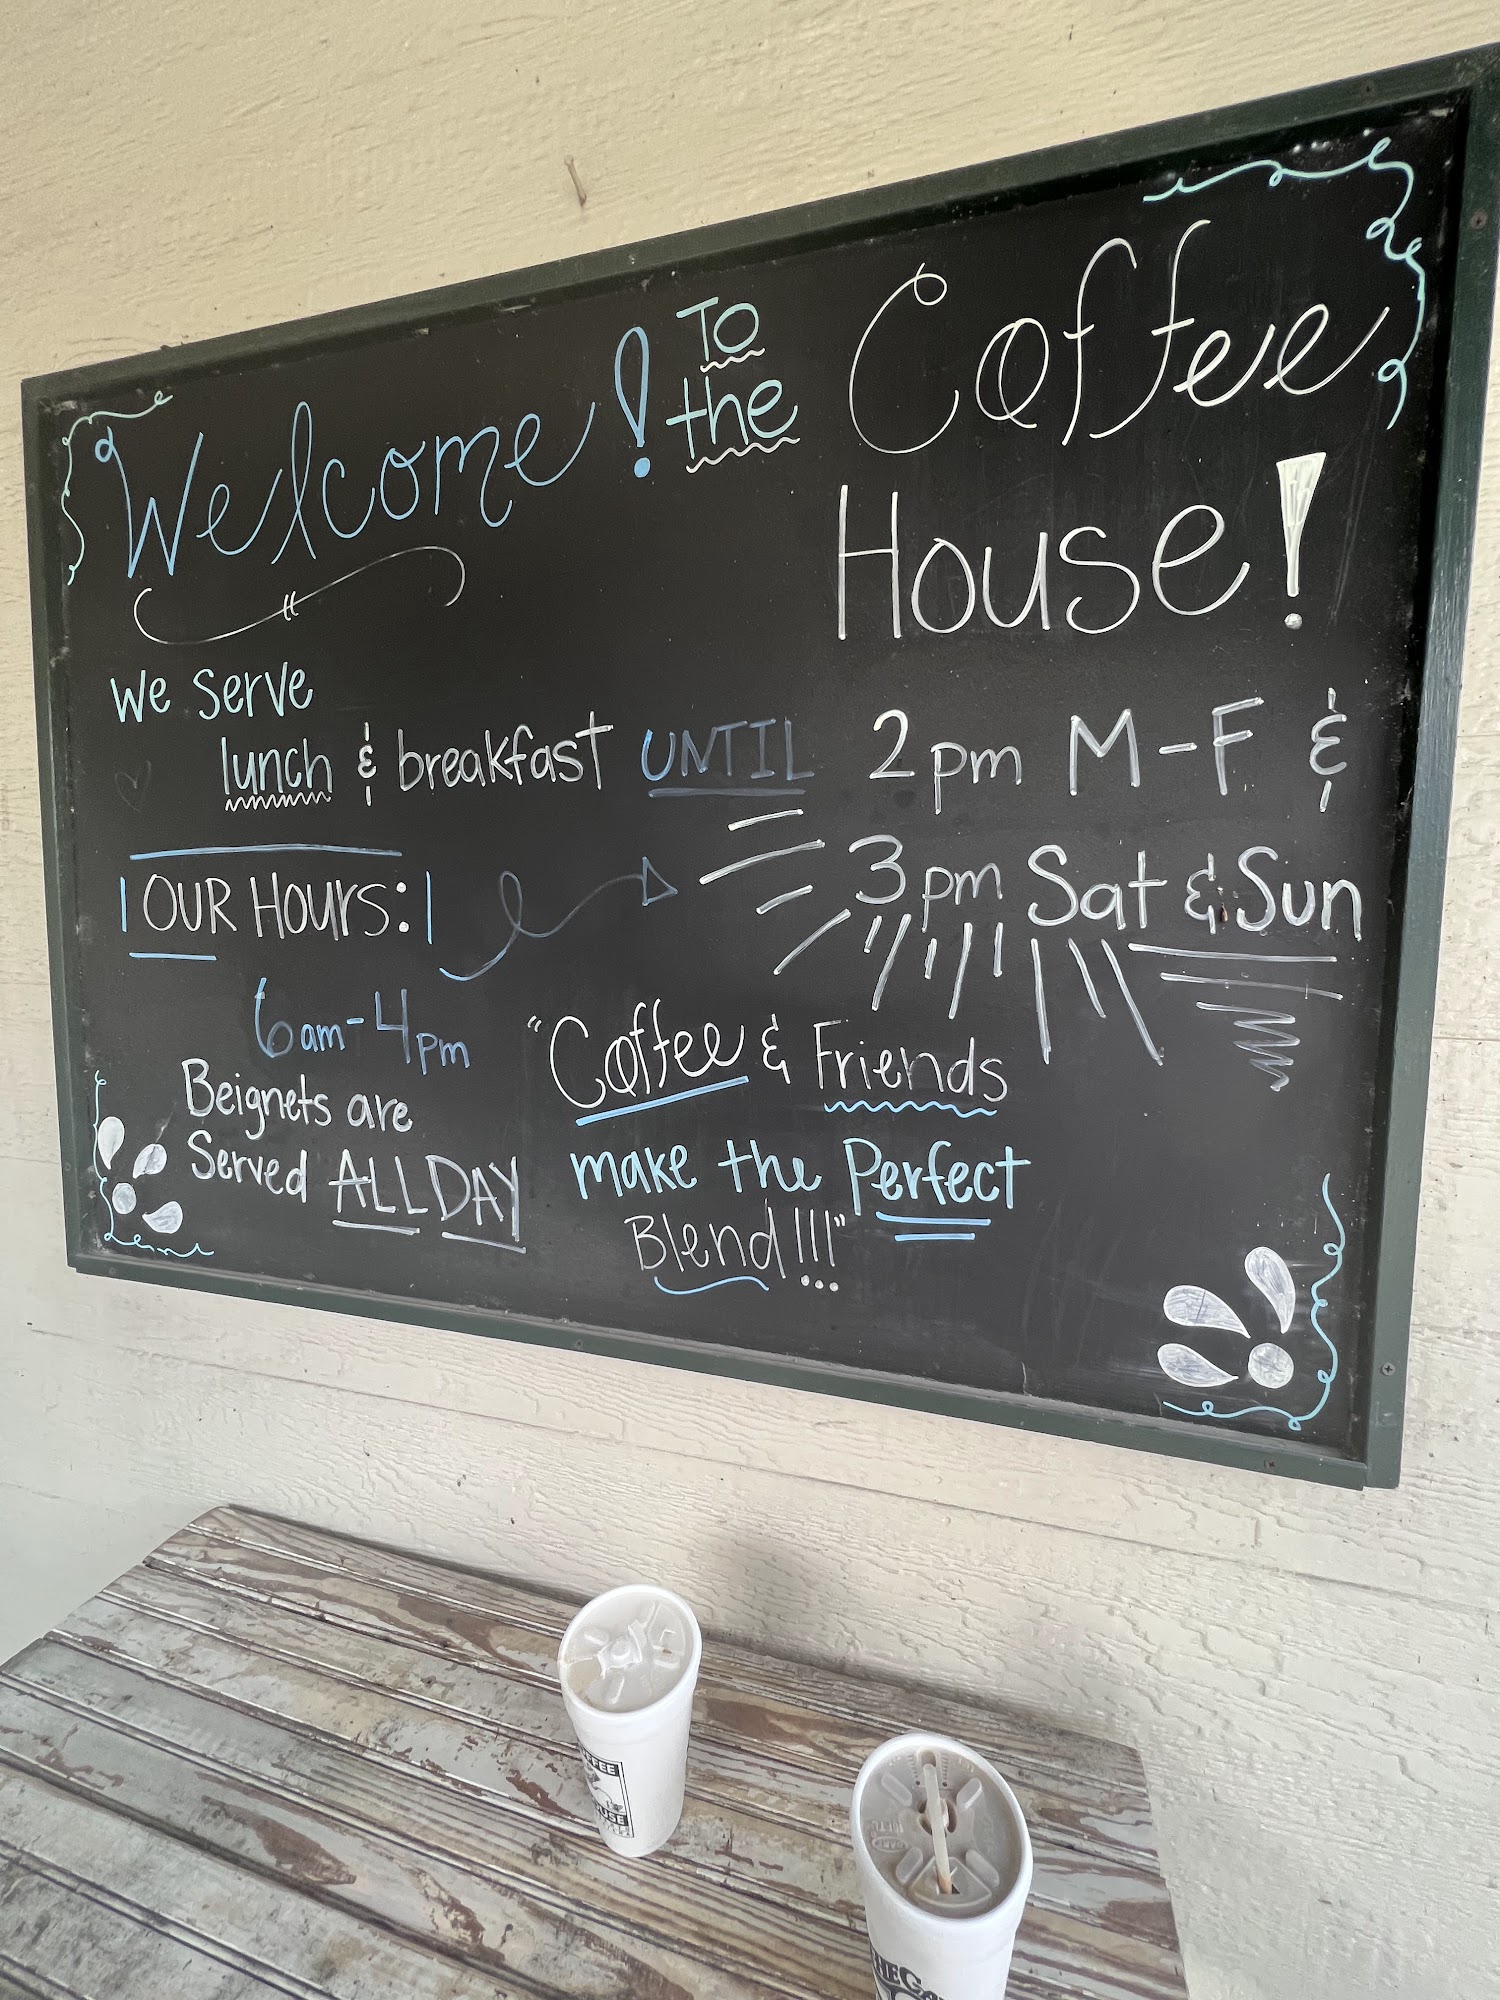 Welcome! To
the Coffee
House!
We serve
lunch & breakfast UNTIL 2pm M-F &
3pm Sat & Sun
OUR HOURS:
6am-4pm
Beignets are
Served ALL DAY
"Coffee & Friends
make the Perfect
Blend!!!"
HOUSE
THE